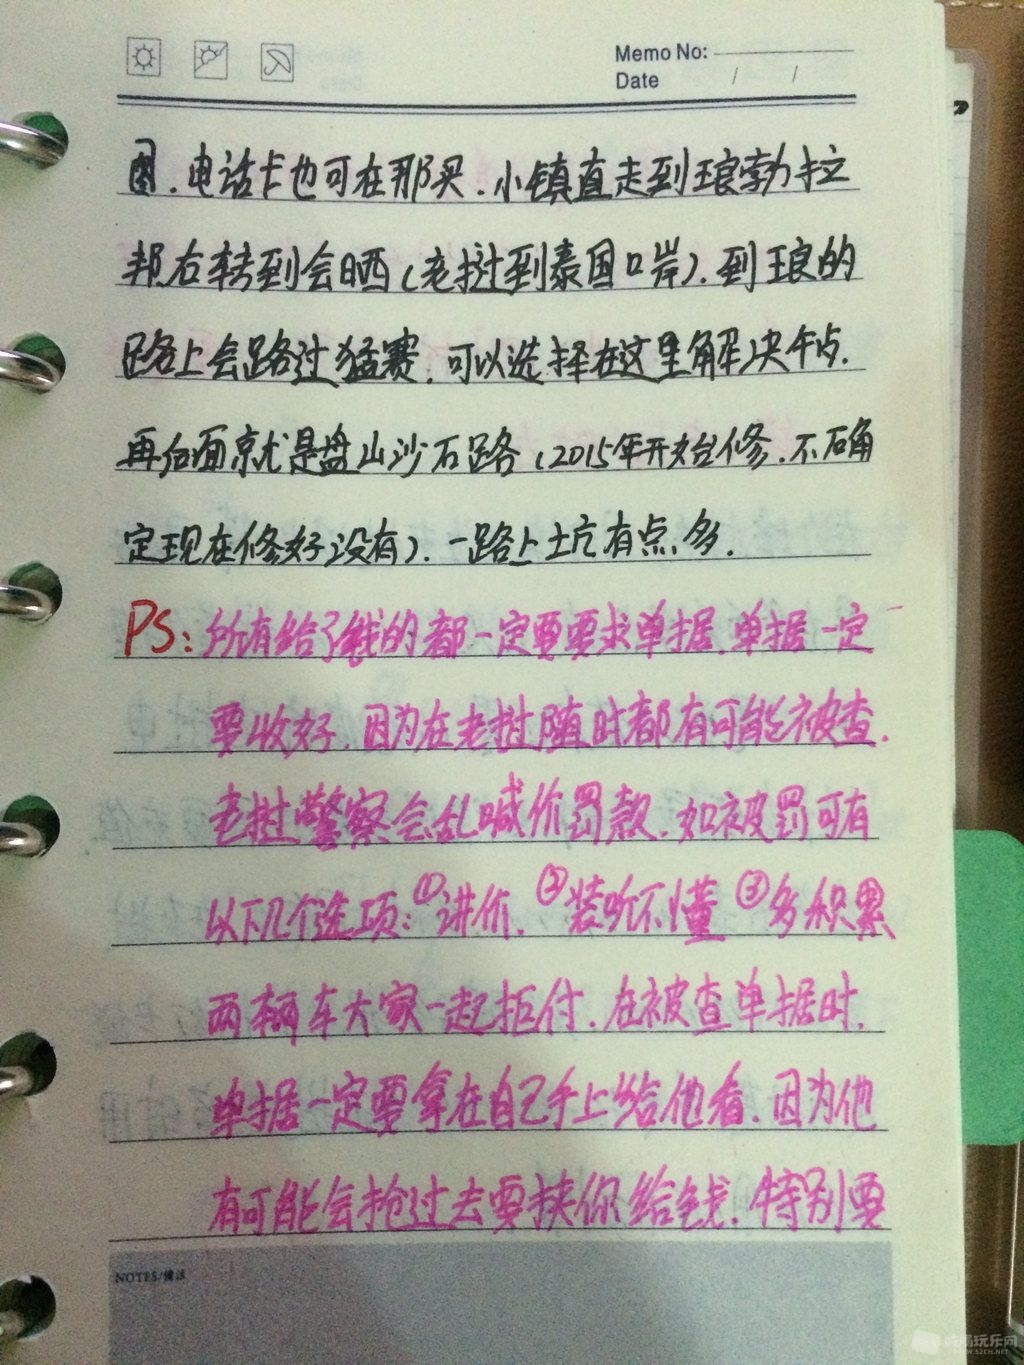 Memo No:
Date / /
圈.电话卡也可在那买.小镇直走到琅勃拉
邦右转到会晒(老挝到泰国口岸).到琅的
路上会路过猛赛.可以选择在这里解决午饭.
再后面就是盘山沙石路(2015年开始修.不确
定现在修好没有).一路上坑有点多.
PS:所有给了钱的都一定要要求单据.单据一定
要收好.因为在老挝随时都有可能被查.
老挝警察会乱喊价罚款.如被罚可有
以下几个选项:①讲价.②装听不懂③多积累
两辆车大家一起拒付.在被查单据时.
单据一定要拿在自己手上给他看.因为他
有可能会抢过去要挟你给钱.特别要
NOTES/備註
吃喝玩乐网
WWW.52CH.NET